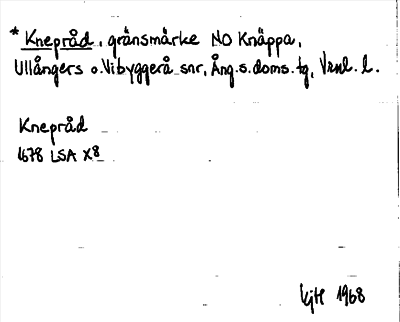 * Knepråd, gränsmärke NO Knäppa,
Ullångers o. Vibyggerå snr, Ång.s.doms.tg, Vrnl. l.
Knepråd
1678 LSA X8
KjH 1968